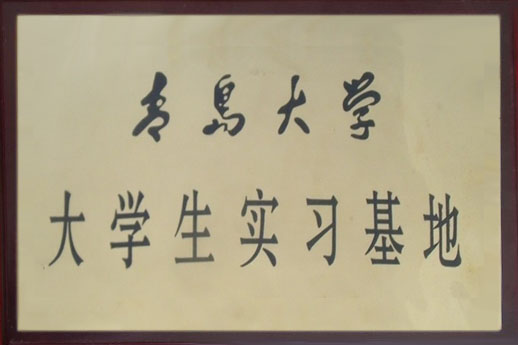 青岛大学
大学生实习基地